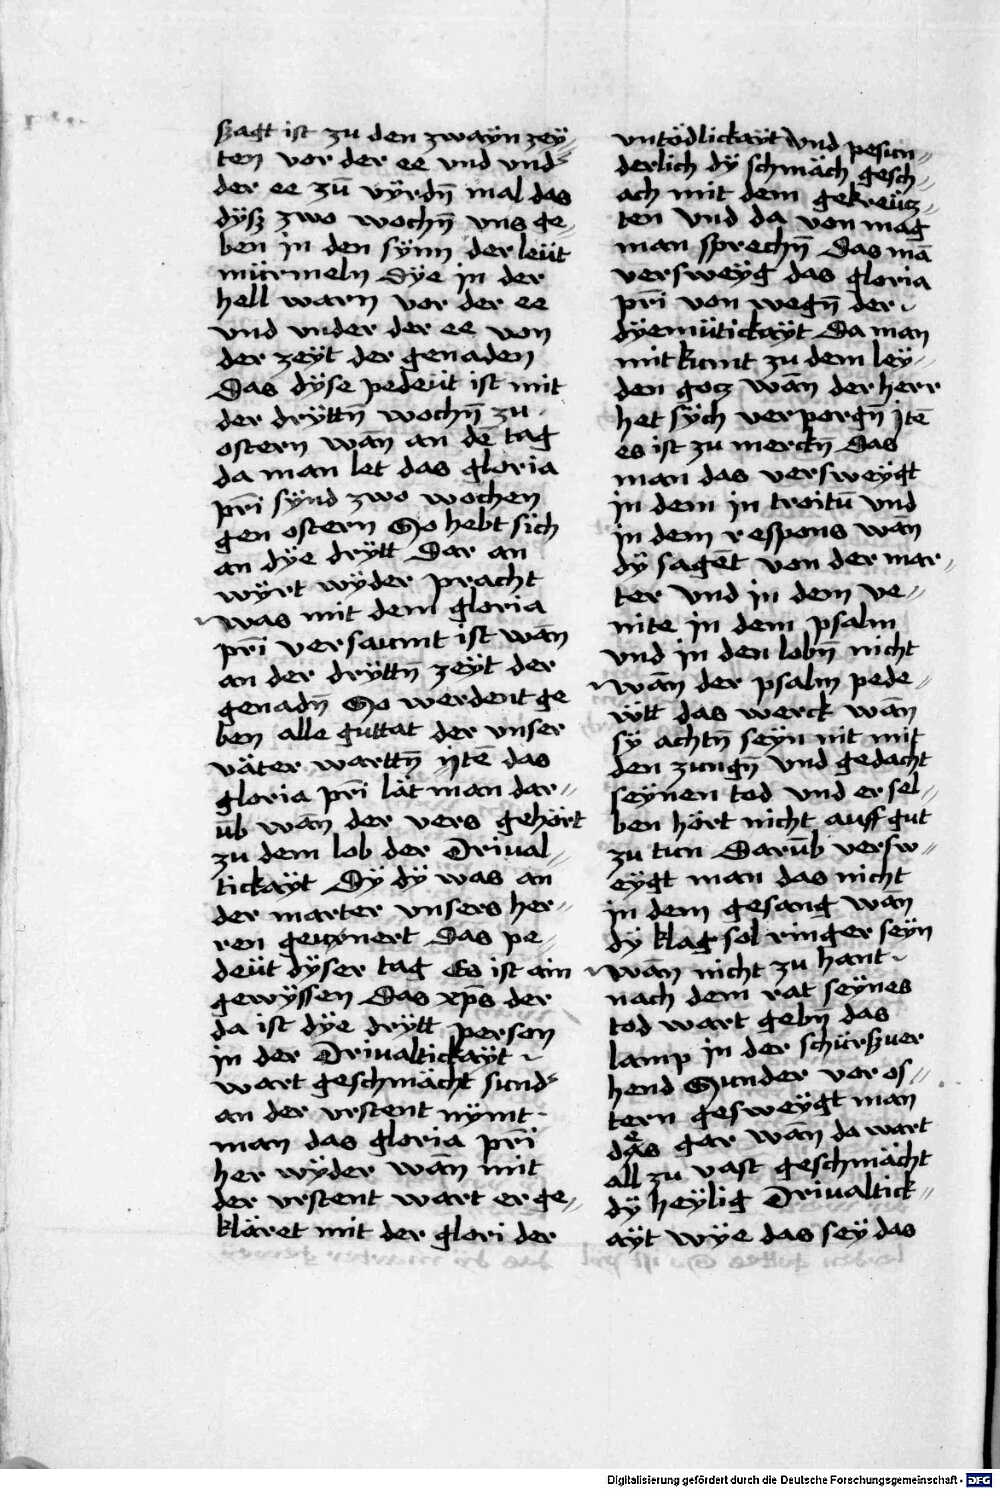 szagt ist zu den zwaÿn zeÿ„
ten vor der ee vnd vnd
der ee zū vÿrdn̄ mal das
dÿsz zwo wochn̄ vns ge„
ben in den sÿnn der leüt
mürmeln Dÿe in der
hell warn vor der ee
vnd vnder der ee von
der zeÿt der genaden
Das dÿse pedeüt ist mit
der drÿttn̄ wochn̄ zu
ostern wān an dē tag
da man let das gloria
pr̄i sÿnd zwo wochen
gen ostern So hebt sich
an dÿe drÿtt Dar an
wÿrt wÿder pracht
was mit dem gloria
pr̄i versaumt ist wān
an der drÿttn̄ zeÿt der
genadn̄ So werdent ge
ben alle guttat der vnser
väter warttn̄ jtē das
gloria pr̄i lät man dar„
ūb wān der vers gehört
zu dem lob der Driual„
tickaÿt Dÿ dÿ was an
der marter vnsers her„
ren geuxnert Das pe„
deüt dÿser tag Es ist ain
gewÿssen Das xp̄s der
da ist dÿe drÿtt person
in der Driualtickaÿt
wart geschmächt sund
an der vrstent nÿmt
man das gloria pr̄i
her wÿder wān mit
der vrstent wart er ge„
kläret mit der glori der
vntödlickaÿt Vnd pesun„
derlich dÿ schmäch gesch„
ach mit dem gekreücz„
ten vnd da von mag
man sprechn̄ Das mā
versweÿg das gloria
pr̄i von wegn̄ der
dÿemütickaÿt Da man
mit kumt zu dem leÿ„
den gocz wān der herr
het sÿch verporgn̄ jtē
es ist zu merckn̄ Das
man das versweÿgt
in dem in troitū vnd
in dem respons wan
dÿ sagēt von der mar„
ter vnd in dem ve„
nite in dem psalm
vnd in den lobn̄ nicht
wān der psalm pede„
ütt das werck wān
sÿ achtn̄ seÿn nit mit
den zungn̄ vnd gedacht
seÿnen tod vnd er sel„
ben hört nicht auff gut
zu tun Darūb versw„
eÿgt man das nicht
in dem gesang wān
dÿ klag sol ringer seÿn
wān nicht zu hant
nach dem rat seÿnes
tod wart gebn das
lamp in der schürszuer
hend Sunder vor os„
tern gesweÿgt man
das gar wān da wart
all zu vast geschmächt
dÿ heÿlig Driualtick„
aÿt wÿe das seÿ das
Digitalisierung gefördert durch die Deutsche Forschungsgemeinschaft - DFG